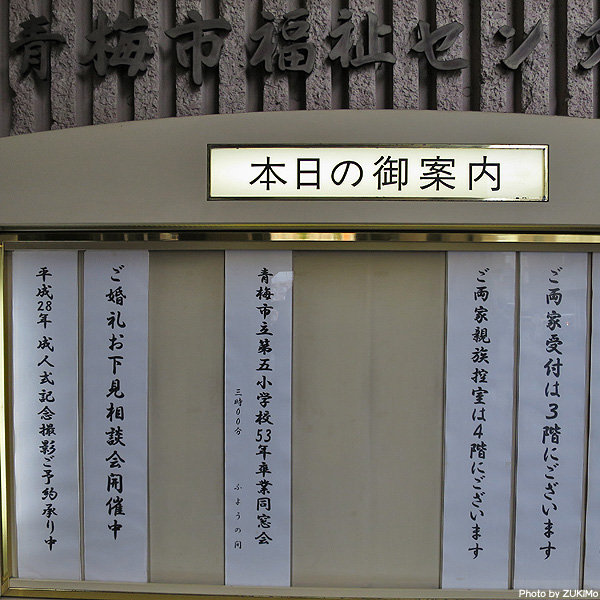 青梅市福祉セン
本日の御案内
ご両家受付は3階にございます
ご両家親族控室は4階にございます
青梅市立第五小学校53年卒業同窓会
三時00分 ふようの間
ご婚礼お下見相談会開催中
平成28年 成人式記念撮影ご予約承り中
Photo by ZUKiMo